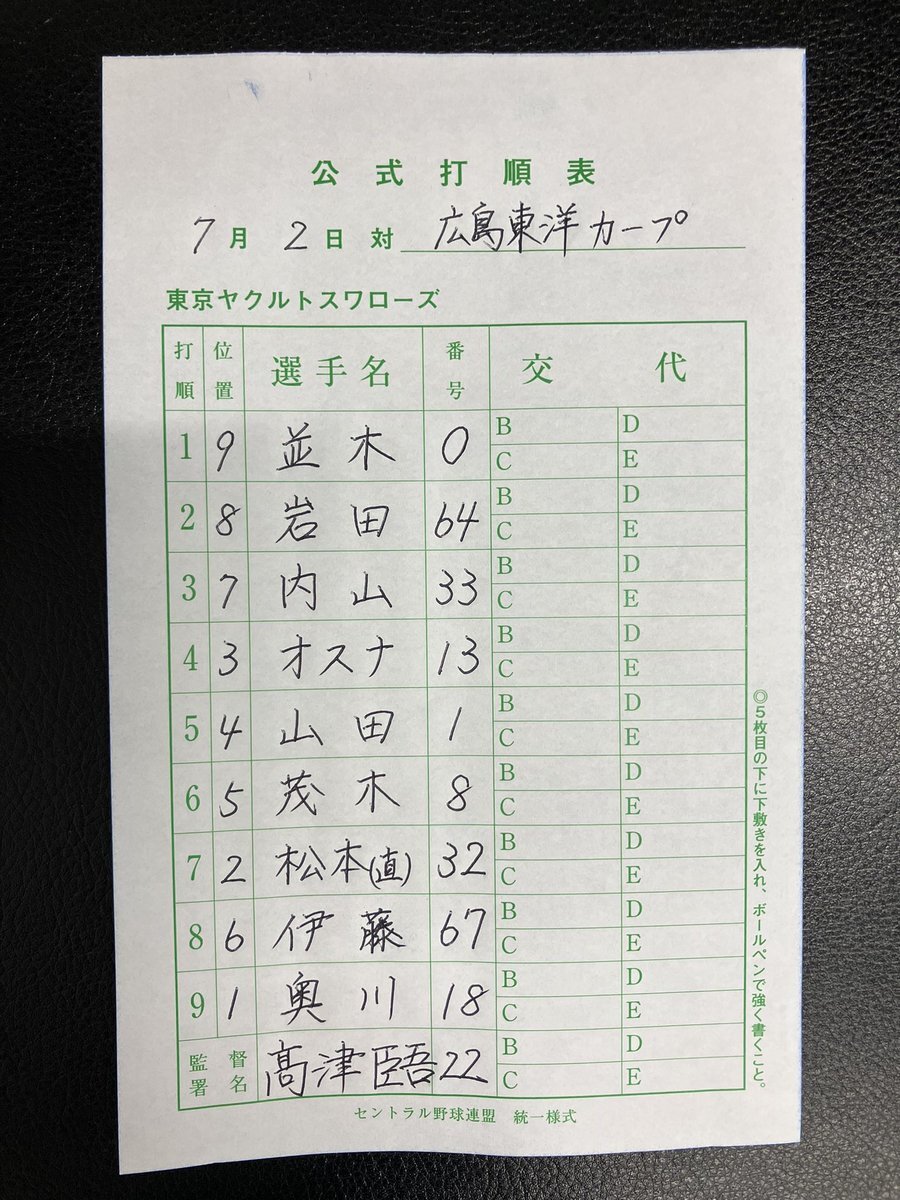 公式打順表
7月2日対 広島東洋カープ
東京ヤクルトスワローズ
打順 位置 選手名 番号 交代
1 9 並木 0 B D
C E
2 8 岩田 64 B D
C E
3 7 内山 33 B D
C E
4 3 オスナ 13 B D
C E
5 4 山田 1 B D
C E
6 5 茂木 8 B D
C E
7 2 松本(直) 32 B D
C E
8 6 伊藤 67 B D
C E
9 1 奥川 18 B D
C E
監督署名 髙津臣吾 22 B D
C E
セントラル野球連盟 統一様式
◎5枚目の下に下敷きを入れ、ボールペンで強く書くこと。